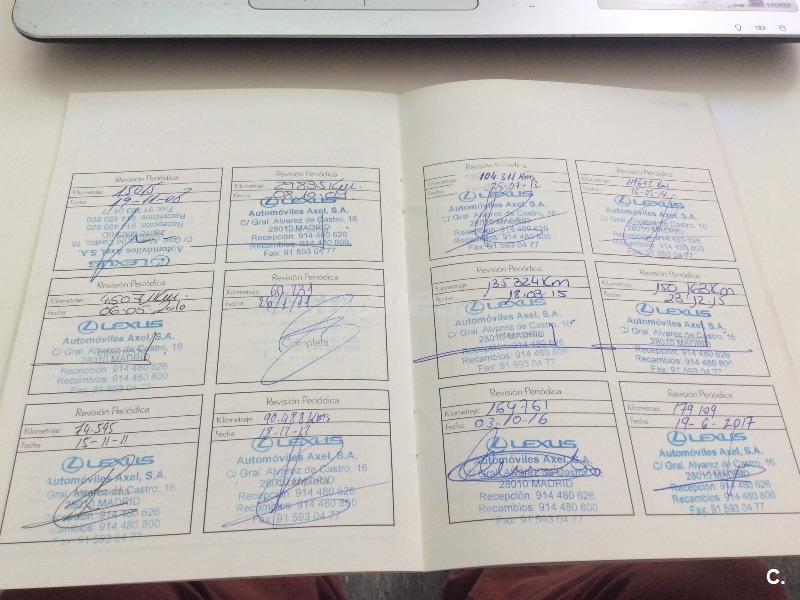 Revisión Periódica
Kilometraje: 15015
Fecha: 19-11-08
LEXUS
Automóviles Axel, S.A.
C/ Gral. Alvarez de Castro, 16
28010 MADRID
Recepción: 914 480 626
Recambios: 914 480 800
Fax: 91 593 04 77
Revisión Periódica
Kilometraje: Km.
Fecha: 08-10-09
LEXUS
Automóviles Axel, S.A.
C/ Gral. Alvarez de Castro, 16
28010 MADRID
Recepción: 914 480 626
Recambios: 914 480 800
Fax: 91 593 04 77
Revisión Periódica
Kilometraje: Km.
Fecha: 06-05-2010
LEXUS
Automóviles Axel, S.A.
C/ Gral. Alvarez de Castro, 16
28010 MADRID
Recepción: 914 480 626
Recambios: 914 480 800
Revisión Periódica
Kilometraje: 60.231
Fecha: 26/1/11
Completa
Revisión Periódica
Kilometraje: 74.545
Fecha: 15-11-11
LEXUS
Automóviles Axel, S.A.
C/ Gral. Alvarez de Castro, 16
28010 MADRID
Recepción: 914 480 626
Recambios: 914 480 800
Fax: 91 593 04 77
Revisión Periódica
Kilometraje: 90.483 Kms
Fecha: 18-12-12
LEXUS
Automóviles Axel, S.A.
C/ Gral. Alvarez de Castro, 16
28010 MADRID
Recepción: 914 480 626
Recambios: 914 480 800
Fax: 91 593 04 77
Revisión Periódica
Kilometraje: 104.311 Kms
Fecha: 25-07-13
LEXUS
Automóviles Axel, S.A.
C/ Gral. Alvarez de Castro, 16
28010 MADRID
Recepción: 914 480 626
Recambios: 914 480 800
Fax: 91 593 04 77
Revisión Periódica
Kilometraje: 119672 Km
Fecha: 16-05-14
LEXUS
Automóviles Axel, S.A.
C/ Gral. Alvarez de Castro, 16
28010 MADRID
Recepción: 914 480 626
Recambios: 914 480 800
Fax: 91 593 04 77
Revisión Periódica
Kilometraje: 135324 Km
Fecha: 18-03-15
LEXUS
Automóviles Axel, S.A.
C/ Gral. Alvarez de Castro, 16
28010 MADRID
Recepción: 914 480 626
Recambios: 914 480 800
Fax: 91 593 04 77
Revisión Periódica
Kilometraje: 150.763 Km
Fecha: 23-12-15
LEXUS
Automóviles Axel, S.A.
C/ Gral. Alvarez de Castro, 16
28010 MADRID
Recepción: 914 480 626
Recambios: 914 480 800
Fax: 91 593 04 77
Revisión Periódica
Kilometraje: 164761
Fecha: 03-10-16
LEXUS
Automóviles Axel, S.A.
C/ Gral. Alvarez de Castro, 16
28010 MADRID
Recepción: 914 480 626
Recambios: 914 480 800
Fax: 91 593 04 77
Revisión Periódica
Kilometraje: 179 109
Fecha: 19-6-2017
LEXUS
Automóviles Axel, S.A.
C/ Gral. Alvarez de Castro, 16
28010 MADRID
Recepción: 914 480 626
Recambios: 914 480 800
Fax: 91 593 04 77
C.